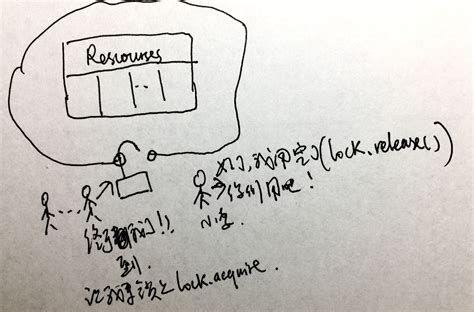 Rescourses
..
好了,我用完了(lock.release())
你们用吧!
小李
终于 我们!!
到.
锁上lock.acquire.